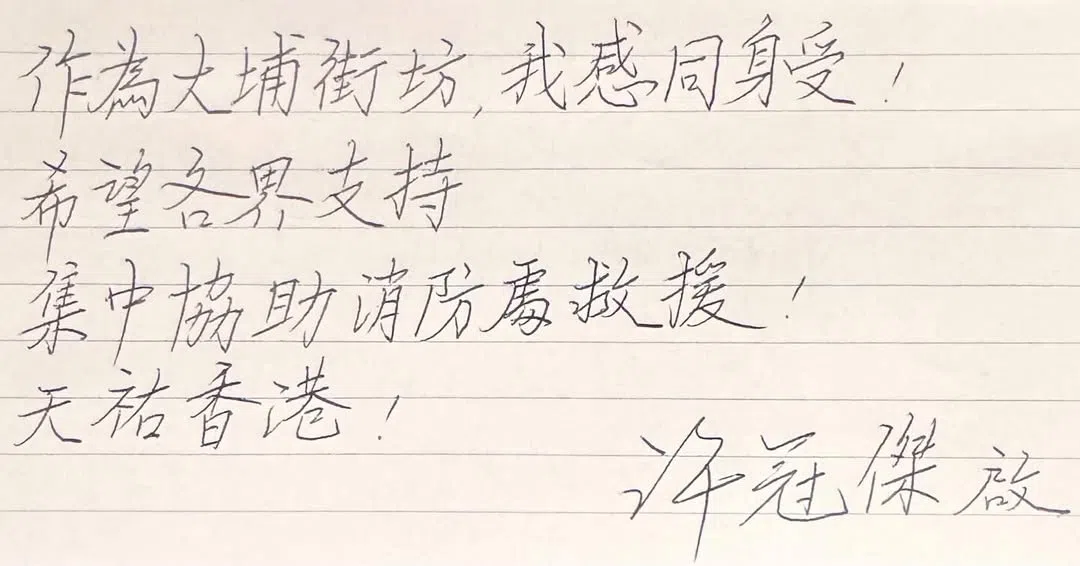 作為大埔街坊,我感同身受!
希望各界支持
集中協助消防處救援!
天祐香港!
许冠傑啟